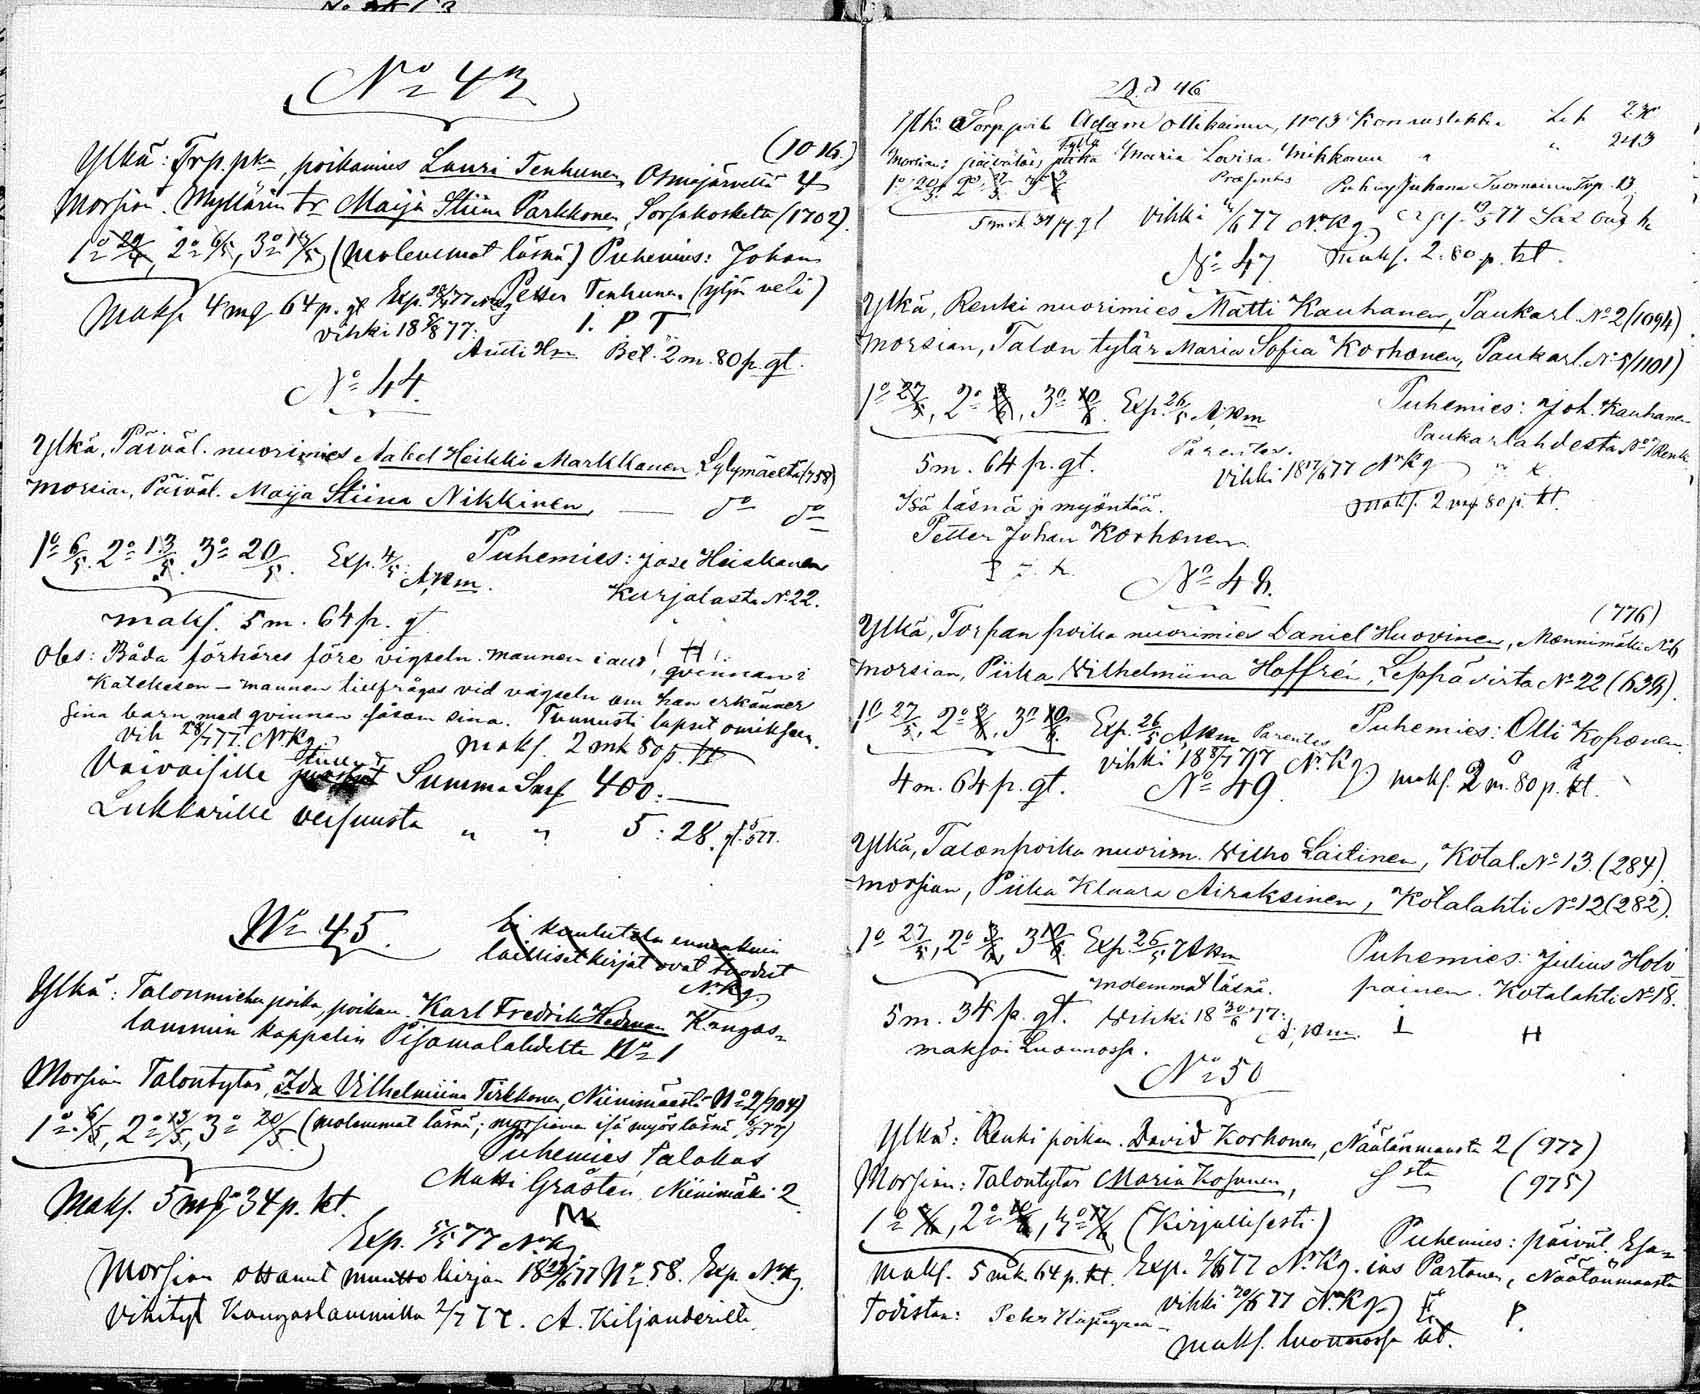 No 43
(1016.)
Ylkä: Trp. pka, poikamies Lauri Tenhunen, Osmajärveltä 4
Morsian. Myllärin tr Maija Stiina Parkkonen, Sorsakoskelta (1702).
1o 29/4, 2o 6/5, 3o 13/5 (molemmat läsnä) Puhemies: Johan
Petter Tenhunen (yljän veli)
Maks. 4 mq 64 p. gt Exp.
vihki 18 77.
I. P. T
Antti Hn Bet. 2 m. 80 p. gt.
No 44.
Ylkä, Päiväl. nuorimies Aabel Heikki Markkanen, Lylymäeltä (758)
Morsian, Päiväl. Maija Stiina Nikkinen, — do do
1o 6/5. 2o 13/5. 3o 20/5. Exp. 4/5. A, Km. Puhemies: Jose Heiskanen
Kurjalasta No 22.
maks. 5 m. 64 p. gt.
Obs: Båda förhöres före vigseln. mannen i , qvinnan i
Katekesen — mannen tillfrågas vid vigseln om han erkänner
sina barn med qvinnan såsom sina. Tunnusti lapset omiksen.
vih 77. N. Kg. maks. 2 mk 80 p.
Vaivaisille Summa Smf 400: —
Lukkarille veisuusta " " 5: 28. gt.
No 45.
Ei kuuluteta ennenkuin
lailliset kirjat ovat tuodut
N. Kg.
Ylkä: Talonmiehen poika, poikam. Karl Fredrik Hedman Kangas-
lammin kappelin Pisamalahdelta No 1
Morsian Talontytär, Ida Vilhelmiina Tirkkonen, Niinimäestä No 2 (904)
1o 6/5, 2o 13/5, 3o 20/5 (molemmat läsnä; morsiamen isä myös läsnä )
Puhemies, Talokas
Matti Gråsten, Niinimäki 2
Maks. 5 mq 34 p. kt.
Exp. 5/5 77 N. Kg
Morsian ottanut muuttokirjan 77 No 58. Exp. N. Kg.
Vihityt Kangaslammilla 2/7 77. A. Kiljanderilta.
No 46
Ylkä Torp. poika Adam Ollikainen, No 13 Konnuslahti
Morsian: päiväläis. tyttö Maria Lovisa Mikkonen " " 243
Præsentes Puhuu Juhana Tuomainen Trp. 13
5 mk 34 p. gt vihki 677 N. Kg
Maks. 2. 80 p. kt.
No 47
Ylkä, Renki nuorimies Matti Kauhanen, Paukarl. No 2 (1094)
Morsian, Talon tytär Maria Sofia Korhonen, Paukarl. No 5 (1101)
1o 27/5, 2o 3/6, 3o 10/6. Exp. 26/5 A, Km Puhemies: Joh. Kauhanen
Parentes. Paukarlahdesta No Renk.
5 m. 64 p. gt. Vihki 18 17/6 77 N. Kg
Isä läsnä ja myöntää. maks. 2 mq 80 p. kt.
Petter Johan Korhonen
No 48.
(776)
Ylkä, Torpan poika nuorimies Daniel Huovinen, Monnimäki No 6
Morsian, Piika Wilhelmiina Hoffrén, Leppävirta No 22 (638).
1o 27/5, 2o 3/6, 3o 10/6 Exp. 26/5 A, Km Parentes Puhemies: Olli Kosonen
vihki 18 77 N. Kg
4 m. 64 p. gt. maks. 2 m. 80 p. kt.
No 49.
Ylkä, Talonpoika nuorim. Wilho Laitinen, Kotal. No 13. (284).
Morsian, Piika Klaara Airaksinen, Kotalahti No 12 (282).
1o 27/5, 2o 3/6, 3 10/6. Exp. 26/5 A Km Puhemies: Julius Holo-
molemmat läsnä. painen. Kotalahti No 18.
5 m. 34 p. gt. Wihki 18 30/6 77: A, Km.
maksoi Luonnossa.
No 50
Ylkä: Renki poikam. David Korhonen, Näätänmaasta 2 (977)
Morsian: Talontytär Maria Kosonen, Ssta (975)
1o 3/6, 2o 10/6, 3o 17/6 (Kirjallisesti) Puhemies: päiväl. Esa-
Maks. 5 mk. 64 p. kt. Exp. 2/6 77 N. Kg. ias Partanen, Näätänmaasta
Todistan: vihki 20/6 77 N. Kg. P.
maks. luonnossa kt.